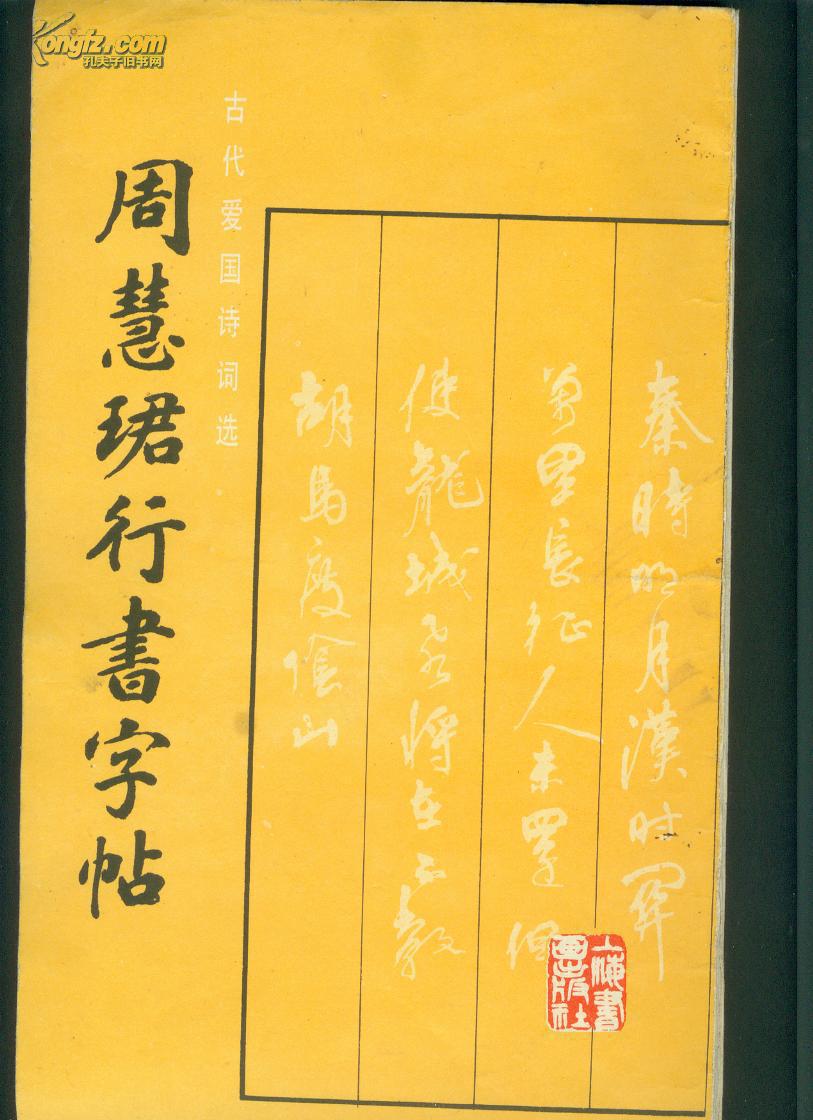 Kongfz.com
孔夫子旧书网
古代爱国诗词选
周慧珺行書字帖
秦時明月漢时關
萬里長征人未還但
使龍城飛将在不教
胡馬度陰山
上海書
畫出版社